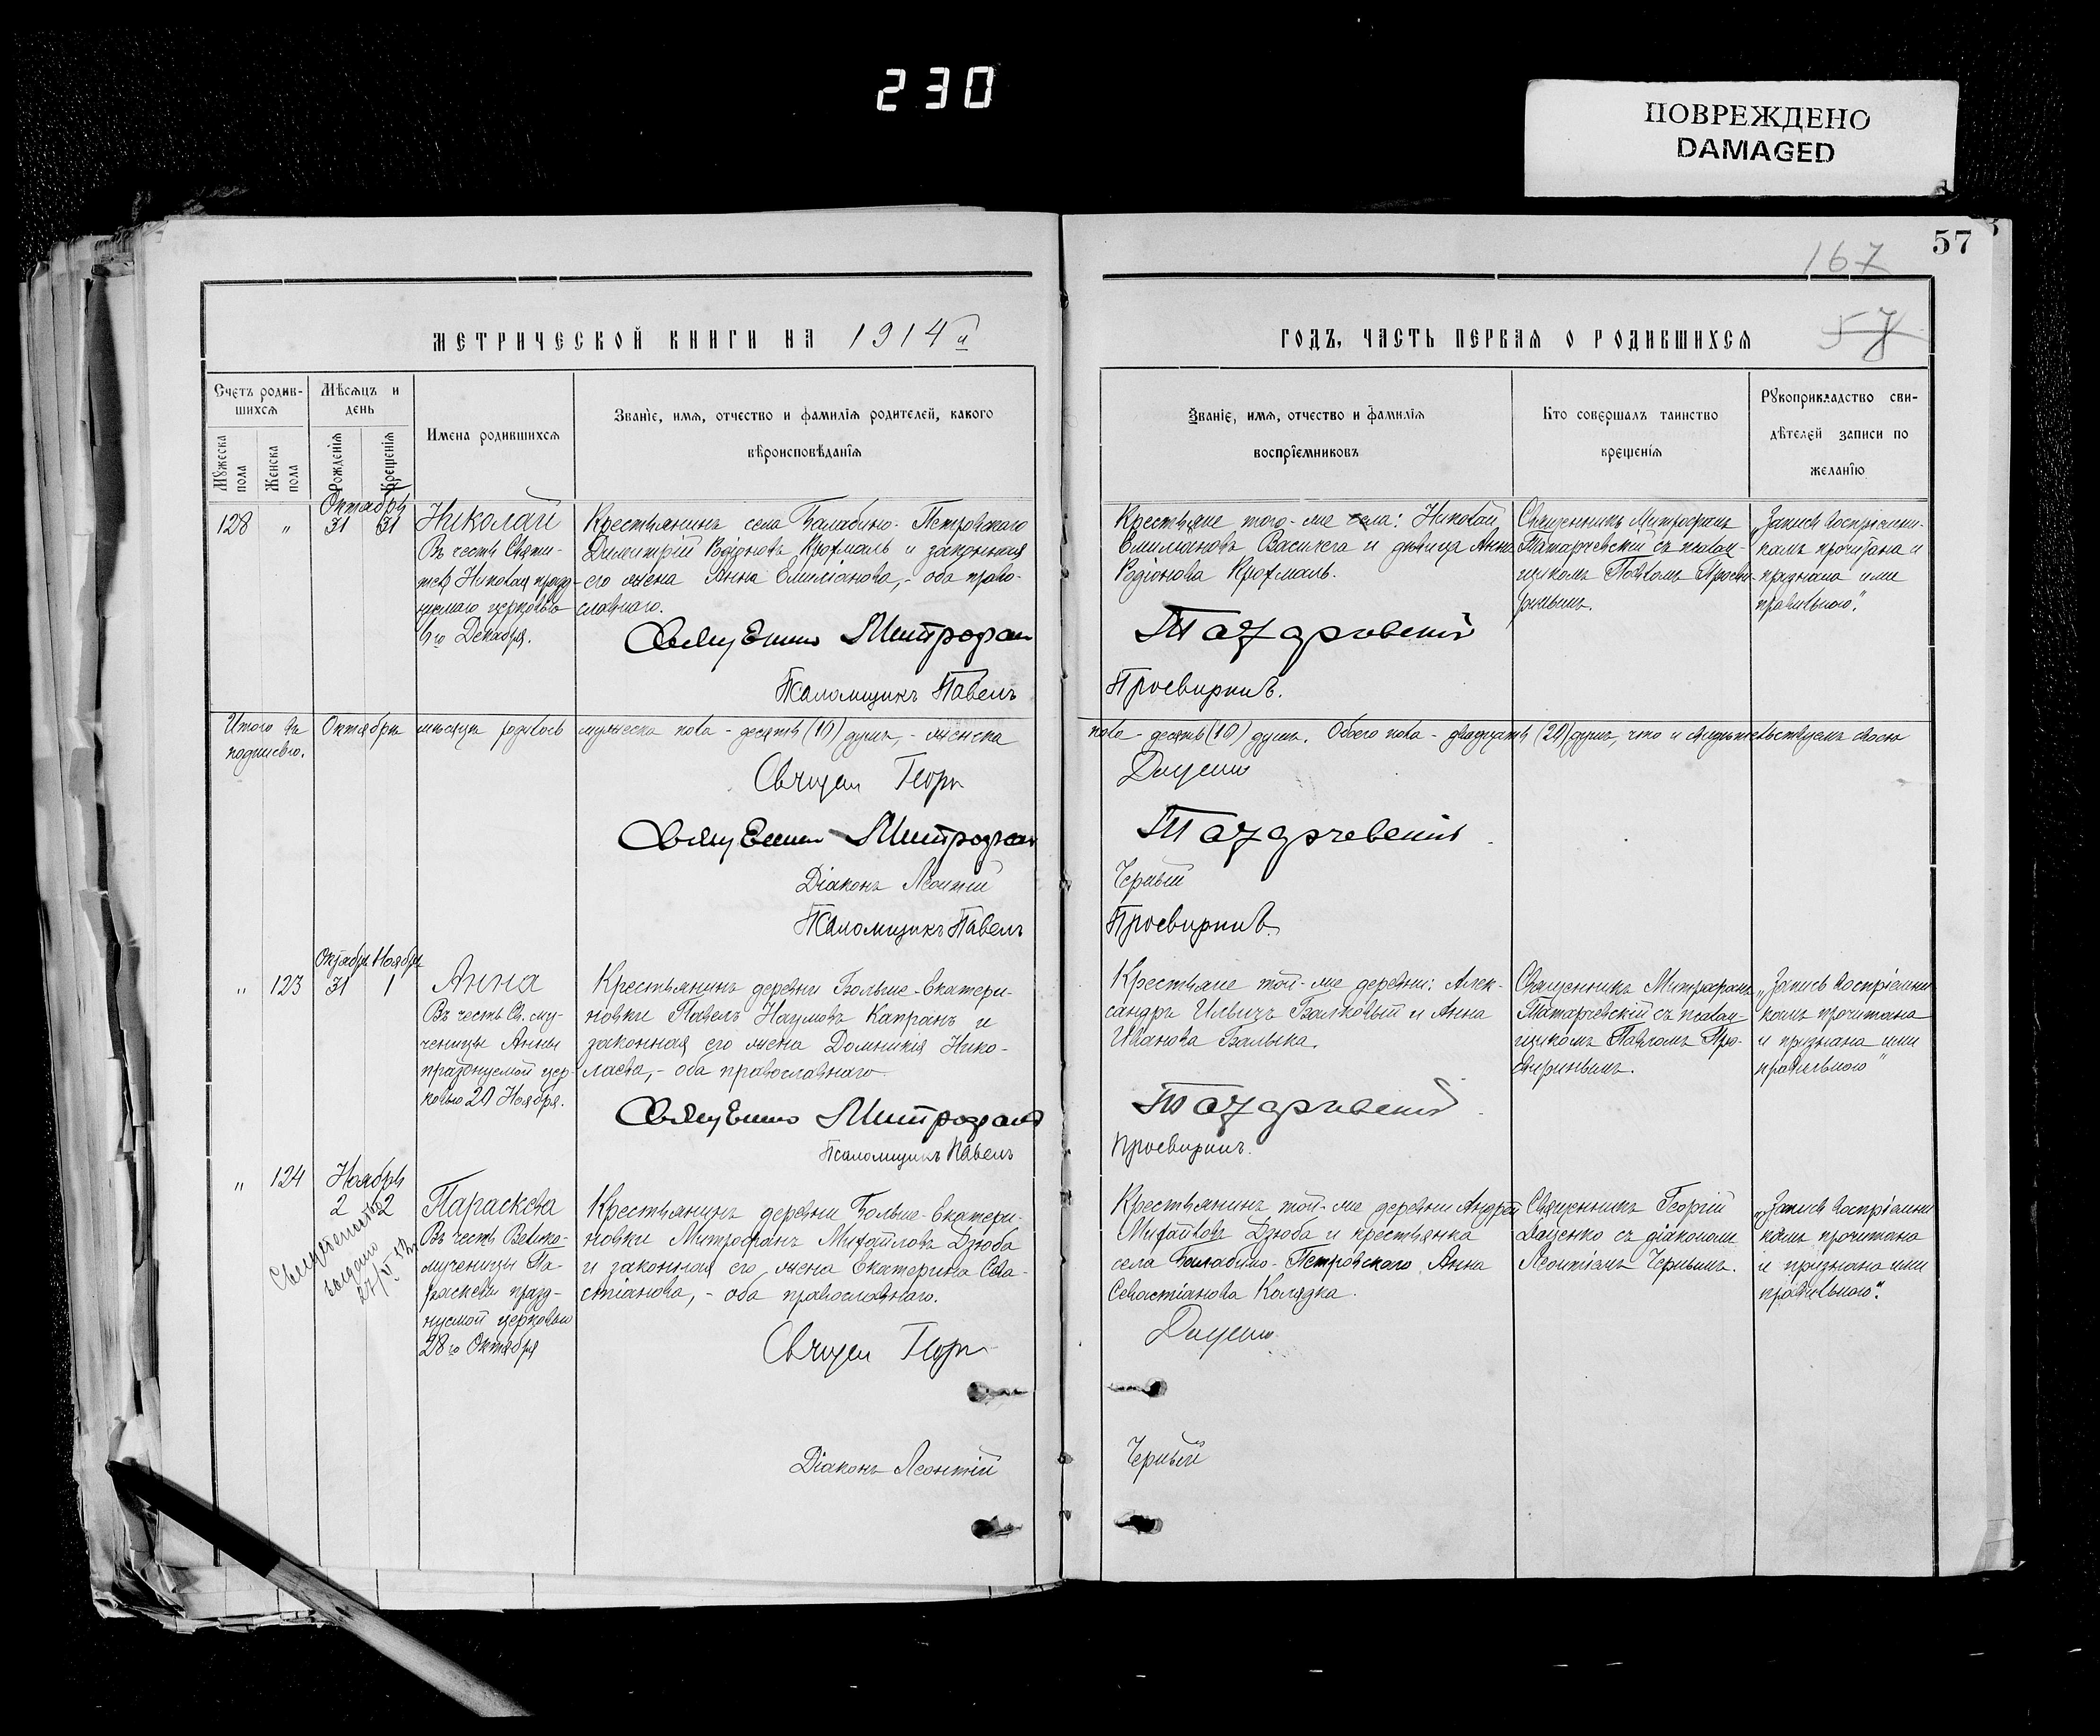 230
ПОВРЕЖДЕНО
DAMAGED
57
167
57
МЕТРИЧЕСКОЙ КНИГИ НА 1914й
ГОДЪ, ЧАСТЬ ПЕРВАЯ О РОДИВШИХСЯ
Счетъ родив-
шихся
Мѣсяцъ и
день
Мужеска
пола
Женска
пола
Рожденія
Крещенія
Имена родившихся
Званіе, имя, отчество и фамилія родителей, какого
вѣроисповѣданія
Званіе, имя, отчество и фамилія
воспріемниковъ
Кто совершалъ таинство
крещенія
Рукоприкладство сви-
дѣтелей записи по
желанію
Октября
128 " 31 31
Николай
Въ честь Святи-
теля Николая празд-
нуемаго церковью
6го Декабря.
Крестьянинъ села Балабино-Петровскаго
Димитрій Родіоновъ Крохмаль и законная
его жена Анна Емиліанова, - оба право-
славнаго.
Священникъ Митрофан
Псаломщикъ Павелъ
Крестьяне того-же села: Николай
Емиліановъ Василега и дѣвица Анна
Родіонова Крохмаль.
Татарчевскій
Просвирнинъ.
Священникъ Митрофанъ
Татарчевскій съ псалом-
щикомъ Павломъ Просви-
рнинымъ.
"Запись воспріемни-
камъ прочитана и
признана ими
правильною."
Итого въ Октябрѣ мѣсяцѣ родилось мужеска пола - десять (10) душъ, - женска
пола - десять (10) душъ. Обоего пола - двадцать (20) душъ, что и свидѣтельствуемъ своею
подписью.
Священ Георг
Даценко
Священникъ Митрофан
Татарчевскій
Діаконъ Леонтій
Черный
Псаломщикъ Павелъ
Просвирнинъ
Октября Ноября
" 123 31 1
Анна
Въ честь Св. му-
ченицы Анны
празднуемой цер-
ковью 20 Ноября.
Крестьянинъ деревни Больше-Екатери-
новки Павелъ Наумовъ Капранъ и
законная его жена Домникія Нико-
лаева, - оба православнаго
Священникъ Митрофанъ
Псаломщикъ Павелъ
Крестьяне той-же деревни: Алек-
сандръ Ильичъ Балковый и Анна
Иванова Балыка.
Татарчевскій
Просвирнинъ.
Священникъ Митрофанъ
Татарчевскій съ псалом-
щикомъ Павломъ Про-
свирнинымъ.
"Запись воспріемни
камъ прочитана
и признана ими
правильною"
" 124 Ноября
2 2
Свидѣтельство
выдано
Параскева
Въ честь Велико-
мученицы Па-
раскевы празд-
нуемой церковью
28го Октября
Крестьянинъ деревни Больше-Екатери-
новки Митрофанъ Михайловъ Дзюба
и законная его жена Екатерина Сева-
стіанова, - оба православнаго.
Священ Георг
Діаконъ Леонтій
Крестьянинъ той-же деревни Андрей
Михайловъ Дзюба и крестьянка
села Балабино-Петровскаго Анна
Севастіанова Колядка.
Даценко
Черный
Священникъ Георгій
Даценко съ діакономъ
Леонтіемъ Чернымъ.
"Запись воспріемни
камъ прочитана
и признана ими
правильною".